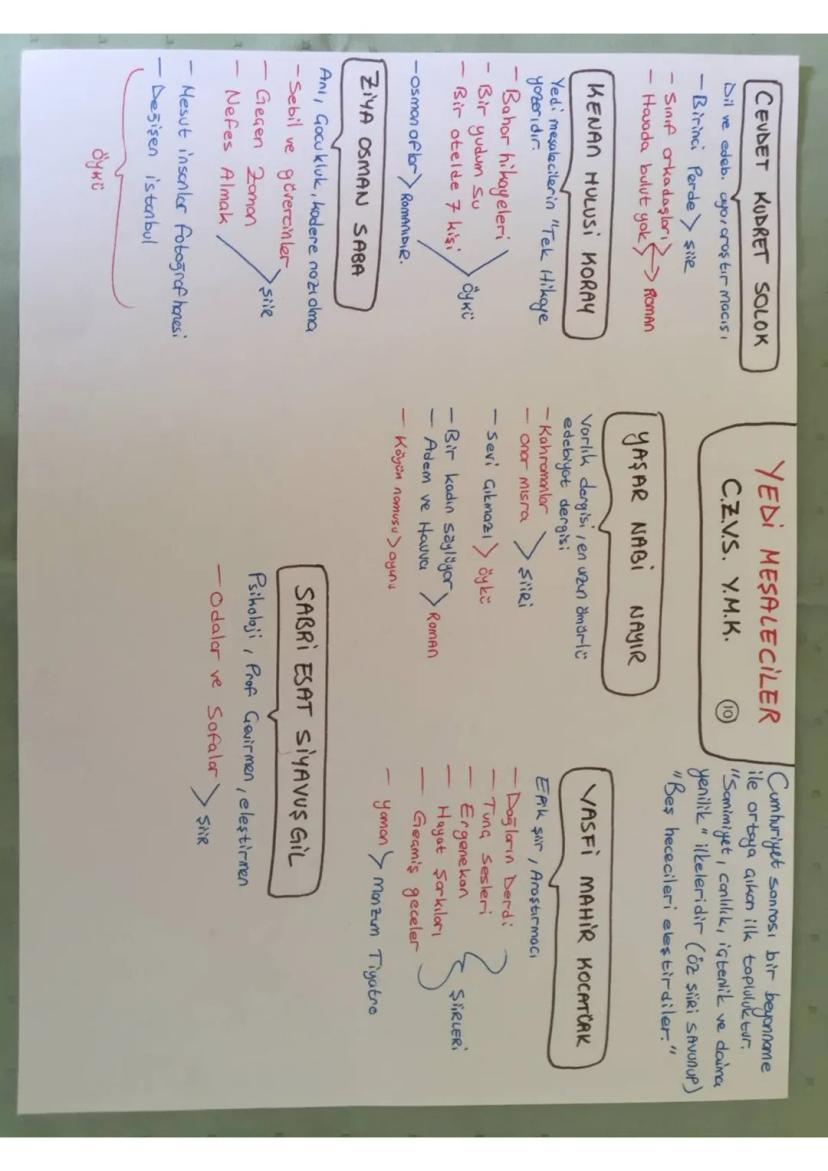 YEDİ MEŞALECİLER
C.Z.V.S. Y.M.K. 10
Cumhuriyet sonrası bir beyanname
ile ortaya çıkan ilk topluluktur.
"Samimiyet, canlılık, içtenlik ve daima
yenilik" ilkeleridir (öz şiiri savunup)
"Beş hececileri eleştirdiler."
CEVDET KUDRET SOLOK
Dil ve edeb. ayar, araştırmacısı
- Birinci Perde > şiir
- Sınıf arkadaşları
- Havada bulut yok > ROMAN
KENAN HULUSİ KORAY
Yedi meşalecilerin "Tek Hikaye
yazarıdır.
- Bahar hikayeleri
- Bir yudum su
- Bir otelde 7 kişi > öykü
- Osmanoflar > Romanıdır.
ZİYA OSMAN SABA
Anı, Çocukluk, kadere razı olma
- Sebil ve güvercinler
- Geçen Zaman
- Nefes Almak > şiir
- Mesut insanlar fotoğraf hanesi
- Değişen istanbul
öykü
YAŞAR NABİ NAYIR
Varlık dergisi, en uzun ömürlü
edebiyat dergisi
- Kahramanlar
- Onar mısra > şiiri
- Sevi Çıkmazı > öykü
- Bir kadın söylüyor
- Adem ve Havva > ROMAN
- Köyün namusu > oyunu
VASFİ MAHİR KOCATÜRK
Epik şiir, Araştırmacı
- Dağların Derdi
- Tunç sesleri
- Ergenekon
- Hayat Şarkıları
- Geçmiş geceler
ŞİİRLERİ
- yaman > Manzum Tiyatro
SABRİ ESAT SİYAVUŞGİL
Psikoloji, Prof Çevirmen, eleştirmen
- Odalar ve Sofalar > şiir